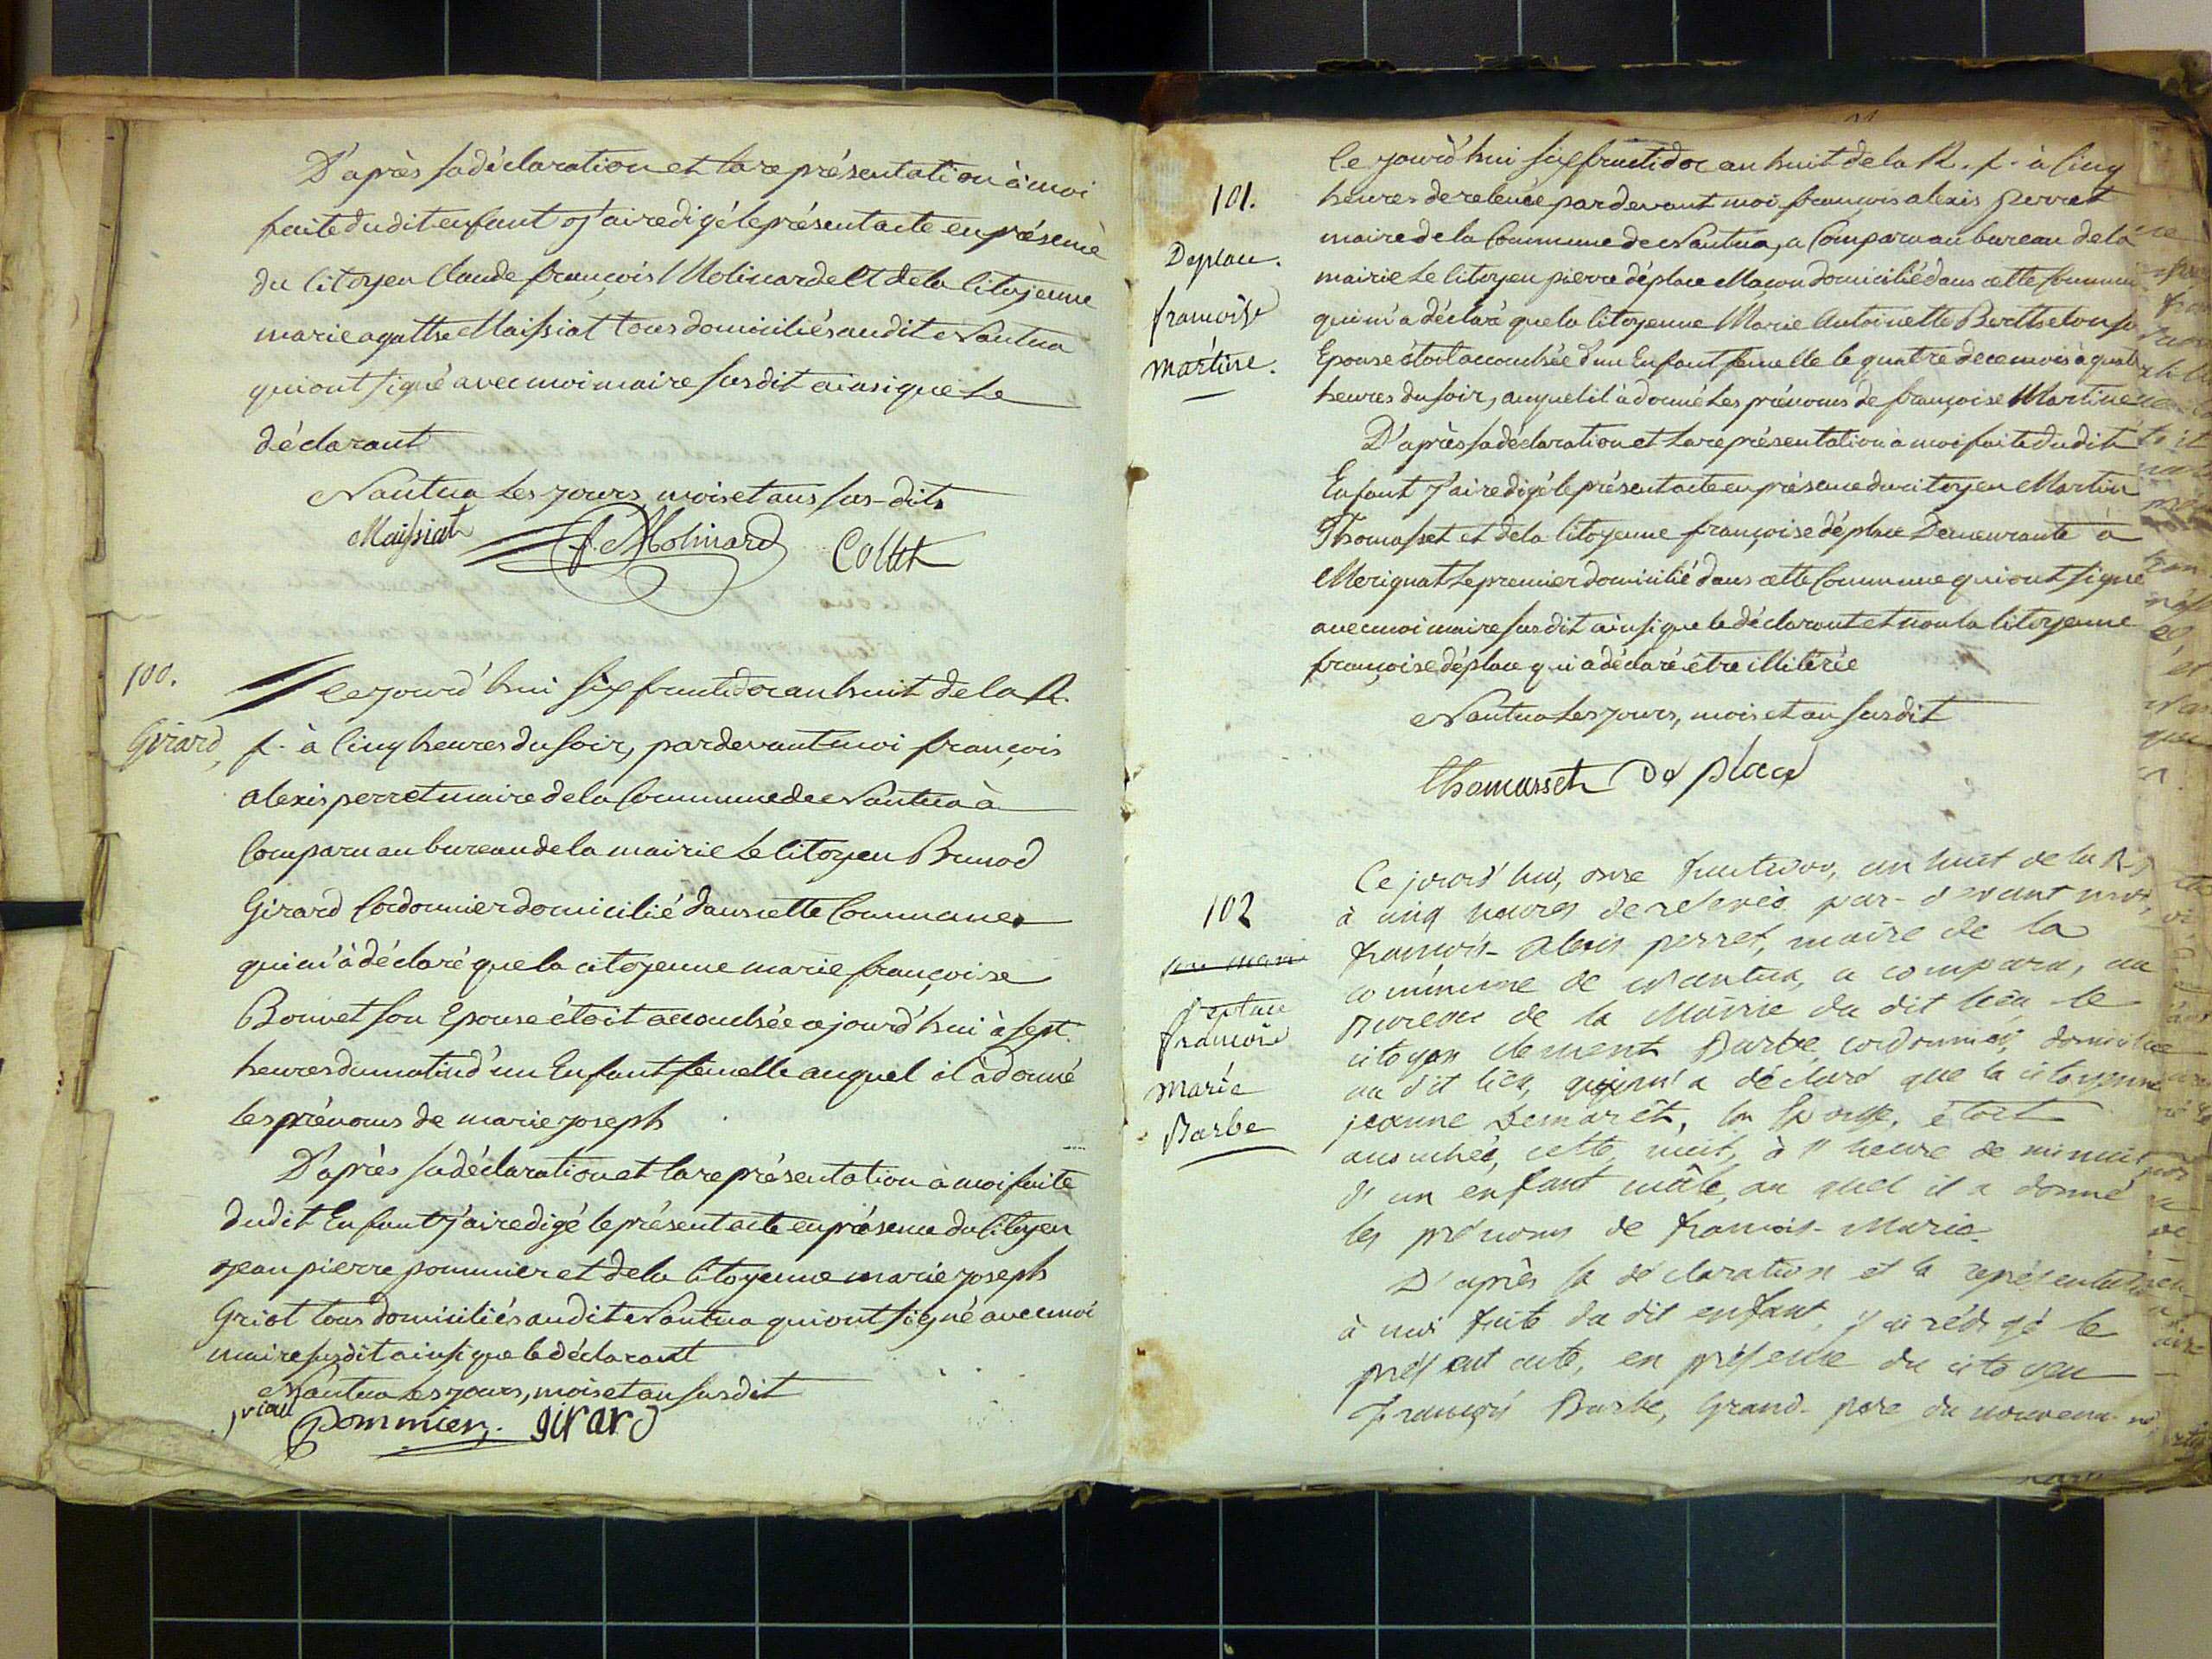 D'après sa déclaration et la représentation à moi
faite dudit enfant j'ai redigé le présent acte en présence
du Citoyen Claude françois Molinard et de la Citoyenne
marie agathe Maissiat tous domiciliés audit Nantua
qui ont signé avec moi maire susdit ainsi que le
déclarant
Nantua les jours mois et ans sus-dits
Maissiat f. Molinard Collet
100.
Girard,
Cejourd'hui six fructidor an huit de la R.
f. à Cinq heures du soir, pardevant moi françois
alexis perret maire de la Commune de Nantua à
Comparu au bureau de la mairie le Citoyen Brunod
Girard Cordonnier domicilié dans cette Commune
qui m'à déclaré que la citoyenne marie françoise
Bonnet son Epouse étoit accouchée cejourd'hui à sept
heures du matin d'un Enfant femelle auquel il à donné
les prénoms de marie joseph
D'après sa déclaration et la représentation à moi faite
dudit Enfant j'ai redigé le présent acte en présence du Citoyen
jean pierre pommier et de la Citoyenne marie joseph
Griot tous domiciliés audit Nantua qui ont signé avec moi
maire susdit ainsi que le déclarant
Nantua les jours, mois et an susdit
Pommier. girard
101.
Deplace.
françoise
martine.
Ce jourd'hui six fructidor an huit de la R. f. à Cinq
heures de relevée pardevant moi françois alexis perret
maire de la Commune de Nantua, a Comparu au bureau de la
mairie le Citoyen pierre déplace Maçon domicilié dans cette Commune
qui m'a déclaré que la Citoyenne Marie Antoinette Berthelon sa
Epouse étoit accouchée d'un Enfant femelle le quatre de ce mois à quatre
heures du soir, auquel il à donné les prénoms de françoise Martine
D'après sa déclaration et la représentation à moi faite dudit
Enfant j'ai redigé le présent acte en présence du citoyen Martin
Thomasset et de la Citoyenne françoise déplace Demeurante à
Merignat le premier domicilié dans cette Commune qui ont signé
avec moi maire susdit ainsi que le déclarant et non la Citoyenne
françoise déplace qui a déclaré être illitérée
Nantua les jours, mois et an susdit
thomasset De place
102
françois
marie
Barbe
Ce jourd'hui, onze fructidor, an huit de la R. f
à cinq heures de relevée par-devant moi,
françois-Alexis perret, maire de la
commune de Nantua, a comparu, au
Bureau de la Mairie du dit lieu le
citoyen clement Barbe cordonnier, domicilié
au dit lieu, qui m'a déclaré que la citoyenne
jeanne Demarêt, son Epouse, étoit
accouchée, cette nuit, à l'heure de minuit
d'un enfant mâle, au quel il a donné
les prénoms de francois-Marie.
D'après sa déclaration et la représentation
à moi faite du dit enfant, j'ai rédigé le
présent acte, en présence du citoyen
François Barbe, Grand-pere du nouveau né